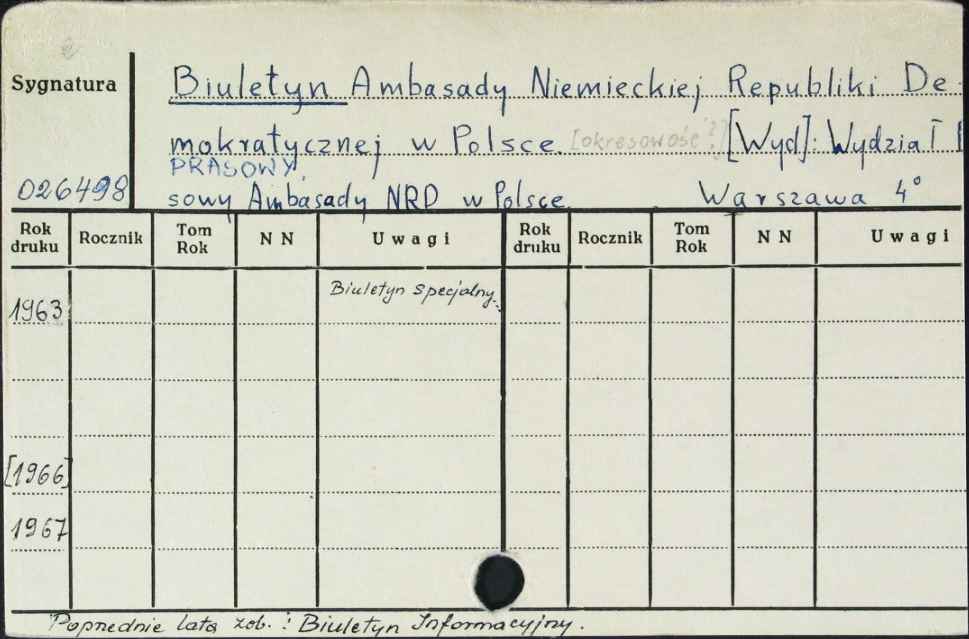 Sygnatura
Biuletyn Ambasady Niemieckiej Republiki De-
mokratycznej w Polsce. [okresowość?] [Wyd]: Wydział
PRASOWY
026498
sowy Ambasady NRD w Polsce. Warszawa 4°
Rok druku Rocznik Tom Rok NN Uwagi Rok druku Rocznik Tom Rok NN Uwagi
Biuletyn specjalny.
1963
[1966]
1967
Poprzednie lata zob.: Biuletyn Informacyjny.